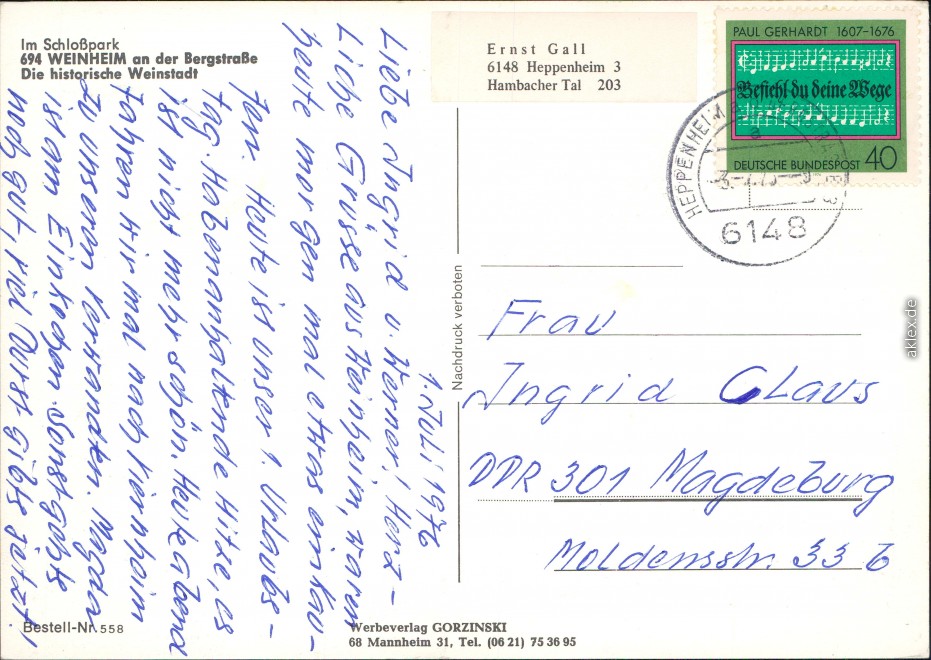 Im Schloßpark
694 WEINHEIM an der Bergstraße
Die historische Weinstadt
Ernst Gall
6148 Heppenheim 3
Hambacher Tal 203
PAUL GERHARDT 1607-1676
Befiehl du deine Wege
DEUTSCHE BUNDESPOST 40
HEPPENHEIM
a
6148
1. JULI 1976
Liebe Ingrid u. Werner! Herz-
liche Grüsse aus Weinheim, waren
heute morgen mal etwas einkau-
fen. Heute ist unser 1. Urlaubs-
tag. Haben anhaltende Hitze, es
ist nicht mehr schön. Heute Abend
fahren wir mal nach Viernheim
zu unseren Verwandten. Magda
ist am Einkochen. Sonst gehts
noch gut, viel Durst gibts jetzt!
Nachdruck verboten
Frau
Ingrid Claus
DDR 301 Magdeburg
Moldensstr. 33 b
Bestell-Nr. 558
Werbeverlag GORZINSKI
68 Mannheim 31, Tel. (06 21) 75 36 95
aklex.de